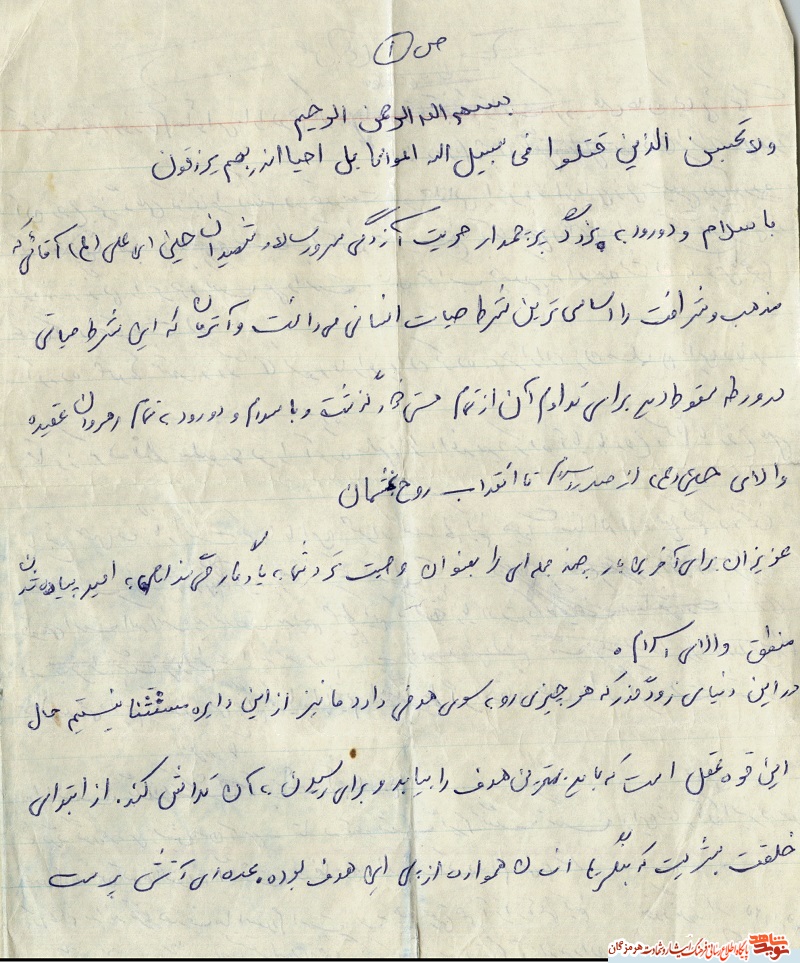 ص ۱
بسم الله الرحمن الرحیم
ولا تحسبن الذین قتلوا فی سبیل الله امواتا بل احیا اندربهم یرزقون
با سلام و دورود به بزرگ پرچمدار حریت آزادگی سرور سالار شهیدان حسین ابن علی (ع) آقائی که
مذهب و شرافت را اساسی ترین شرط حیات انسانی می دانست و آنزمان که این شرط حیاتی
در ورطه سقوط دید برای تداوم آن از تمام هستی خود گذشت و با سلام و دورود به تمام رهروان عقیده
والای حسین (ع) از صدر اسلام تا انقلاب روح بخشمان
عزیزان برای آخرین بار چند جمله ای را بعنوان وصیت نزد شما به یادگار می گذارم به امید پیاده شدن
منطق والای اسلام .
در این دنیای زودگذر که هر چیزی رو به سوی هدفی دارد ما نیز از این دایره مستثنا نیستیم حال
این قوه عقل است که باید بهترین هدف را بیابد و برای رسیدن به آن تلاش کند . از ابتدای
خلقت بشریت که بنگریم انسان همواره از پی این هدف بوده . عده ای آتش پرست
نوید شاهد پایگاه اطلاع رسانی فرهنگ ایثار و شهادت هرمزگان